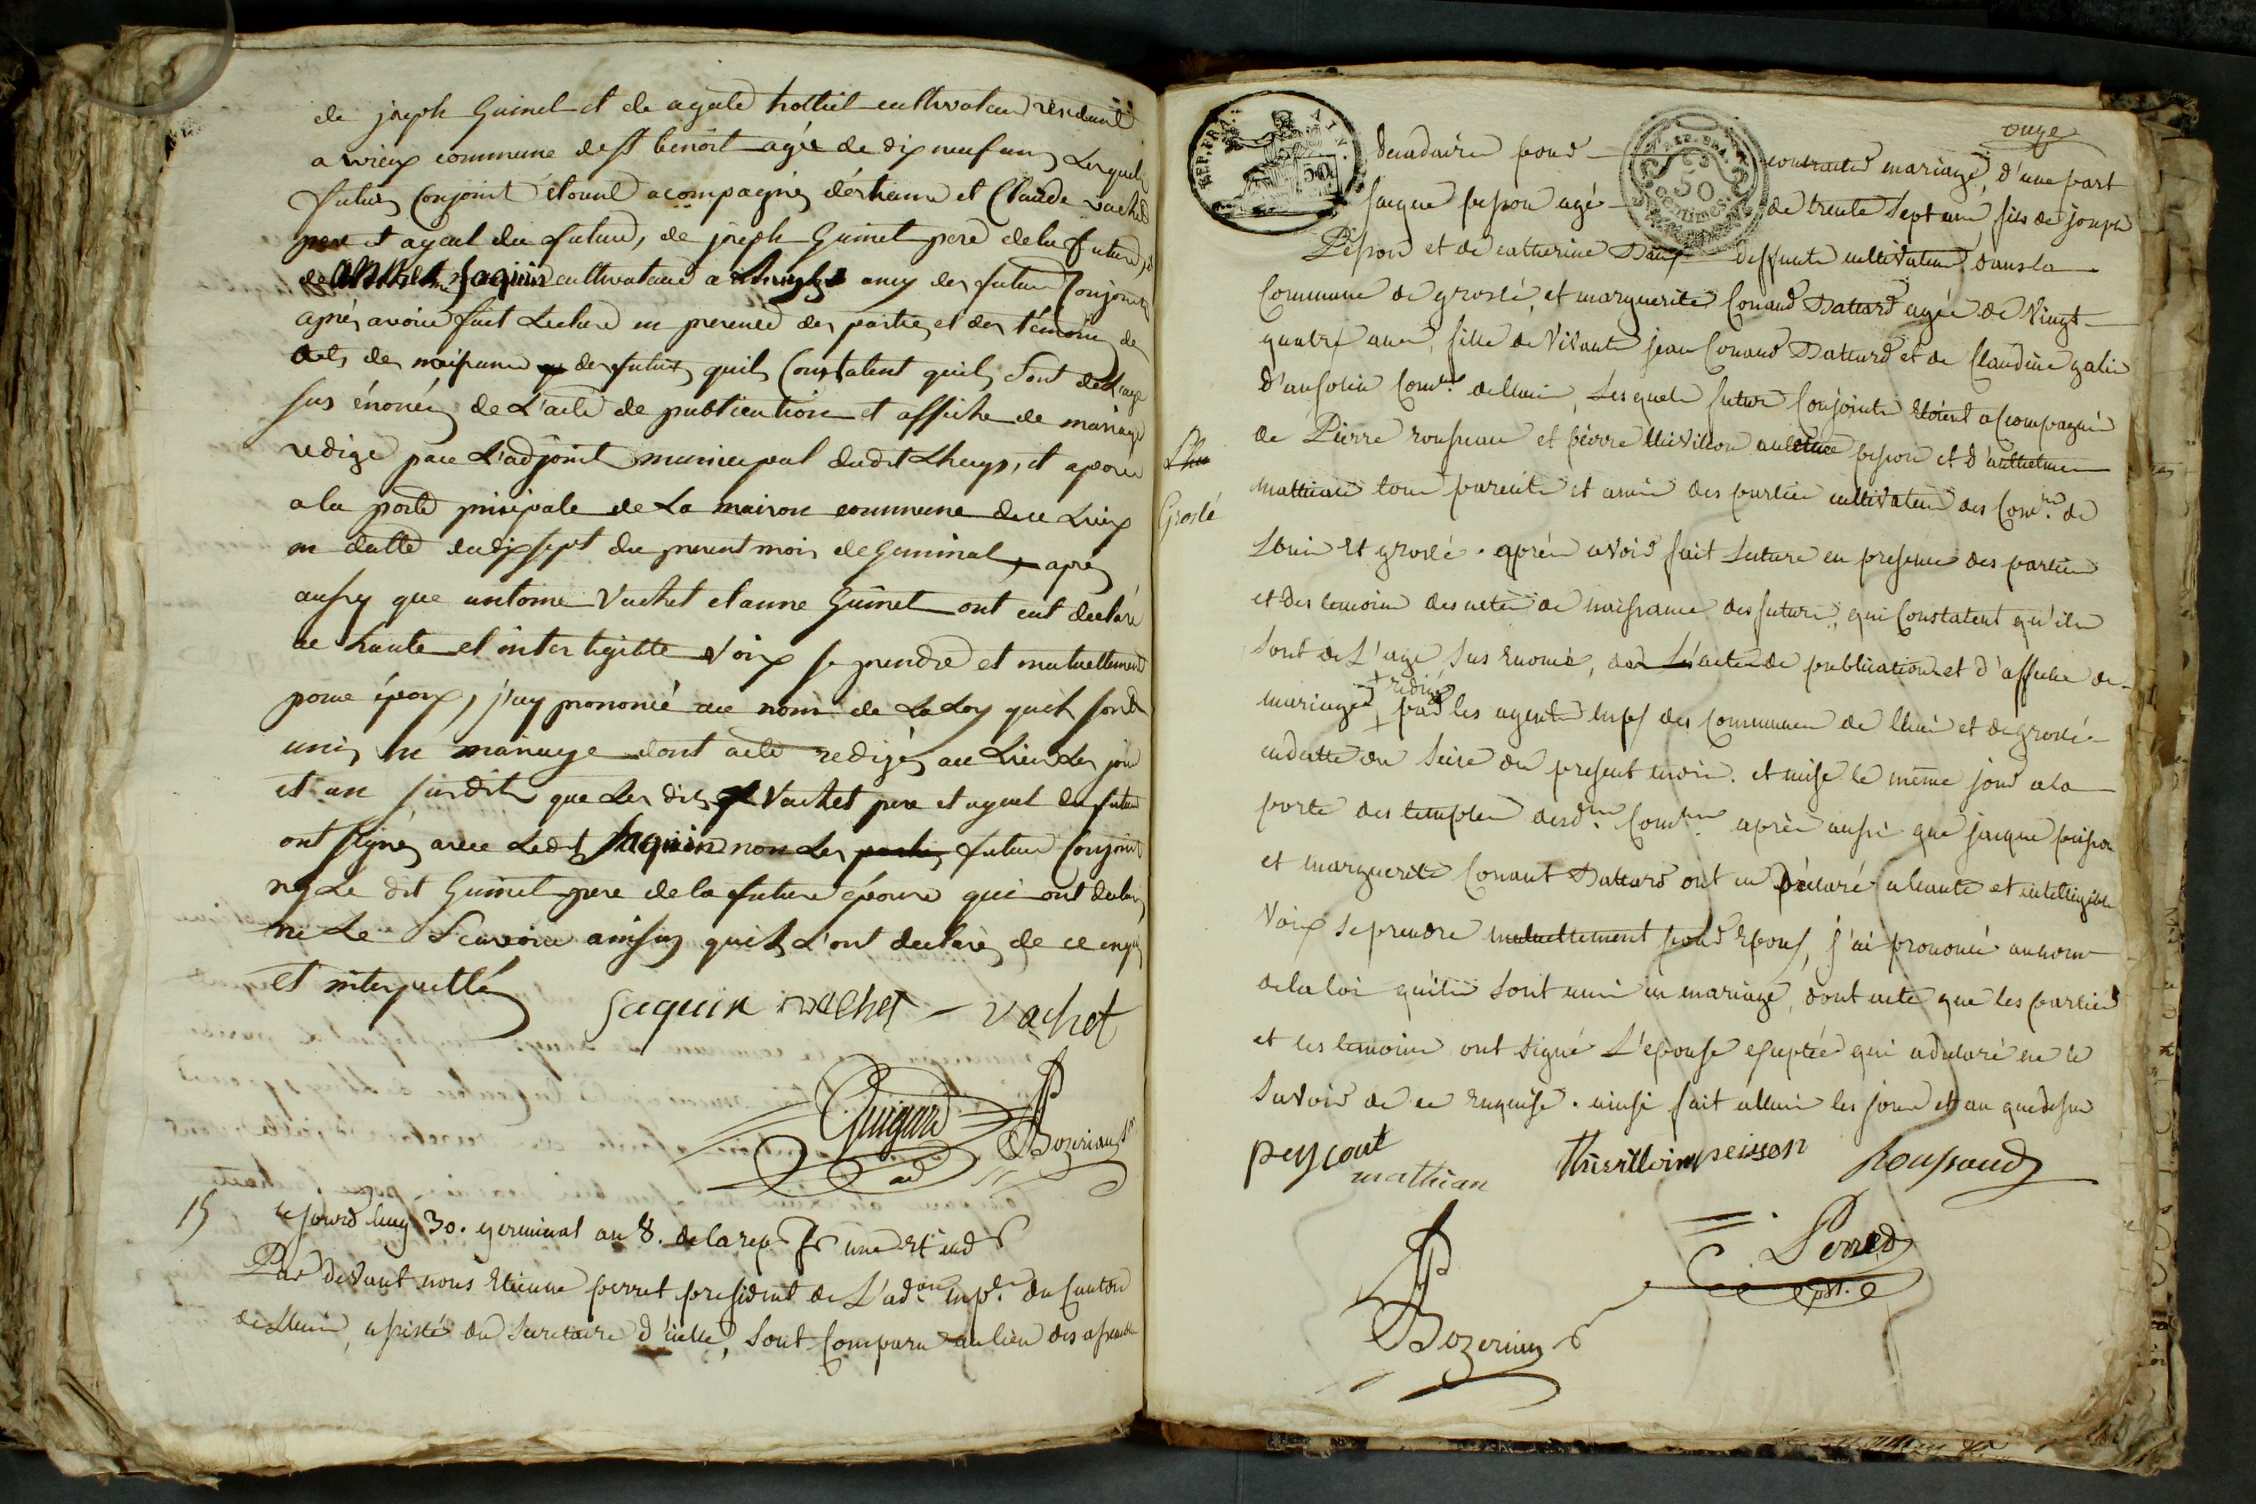 de joseph Guinet et de agate trolliet cultivateur résidant
a vrieux commune de st benoit agée de dix neuf ans Lesquels
futurs Conjoint étount acompagnés détienne et Claude vachet
pere et ayeul du futur, de joseph Guinet pere de la future,
de Jaquin cultivateur a Lhuys amy des futur Conjoints
aprés avoir fait Lecture en presence des parties et des témoins des
actes de naissance des futurs quils Constatent quils sont de L'age
sus énoncés de L'acte de publication et affiche de mariage
redigé par L'adjoint municipal dudit Lhuys, et aposée
a la porte principale de La maison commune de ce Lieux
en datte du dix sept du present mois de Germinal, aprés
aussy que antoine Vachet et anne Guinet ont eut declaré
ae haute et inteligible Voix se prendre et mutuellement
pour époux, j'ay prononcé au nom de La Loy quils sont
unis en mariage dont acte redigés au Lieu Les jour
et an susdits que Les dits Vachet pere et ayeul du futur
ont signés avec Ledit Jaquin non Les parties futur Conjoint
ny Le dit Guinet pere de la future épouse qui ont declaré
ne Le Scavoir ainsy quils L'ont declarés de ce enquis
et interpellés
jaquin vachet — vachet
Guigard
Bozerian
15
ce jourd'huy 30. germinal an 8. de la rep. fr une et ind
Par devant nous Etienne perret president de L'ad.on mp.le du Canton
de Lhuis, assisté du Secretaire d'icelle, sont Comparu au lieu des assemblée
onze
REP. FRA.
AIN.
50
REP. FRA.
50
centimes
Decadaire pour contracter mariage, d'une part
jacque peysson agé de trente Sept ans, fils de joseph
Peysson et de catherine deffunte cultivateur dans la
Commune de groslé, et marguerite Conand Dattard agée de Vingt
quatre ans, fille de Vivants jean Conand Dattard et de Claudine galin
d'ansolin Com.ne de lhuis, Lesquels futur Conjoints étoient acompagnés
de Pierre rousseau et pierre thivillon peyson et d'anthelme
Lhu
Groslé
mathieu tous parents et amis des parties cultivateurs des Com.nes de
Lhuis et groslé. aprés avoir fait Lecture en presence des parties
et des temoins des actes de naissance des futurs, qui Constatent qu'ils
sont de L'age sus enoncé, des L'actes de publication et d'affiche de
mariages + redigés par les agents mpx des Communes de lhuis et de groslé
en datte du Seise du present mois. et mise le même jour a la
porte des temples desd.tes Com.nes aprés aussi que jacque peisson
et marguerite Conant Dattard ont eu declaré a haute et intelligible
Voix se prendre mutuellement pour Epoux, j'ai prononcé au nom
de la loi qu'ils sont unis en mariage, dont acte que les parties
et les temoins ont signé L'epouse eseptée qui a declaré ne le
savoir de ce Enquise. ainsi fait a lhuis les jour et an que dessus
peysont
mathian
thivilloin peisson rousseaud
Perret
pdt.
Bozerian